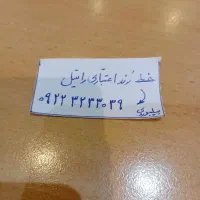 خط رند اعتباری رایتل
۰۹۲۲ ۳۲۳۳۰۳۹